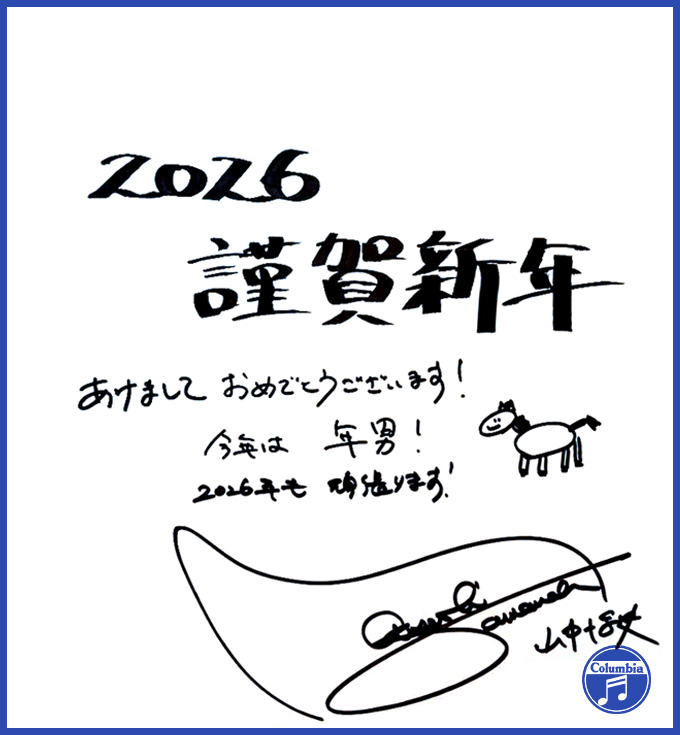 2026
謹賀新年
あけまして おめでとうございます!
今年は 年男!
2026年も 頑張ります!
山中
Columbia